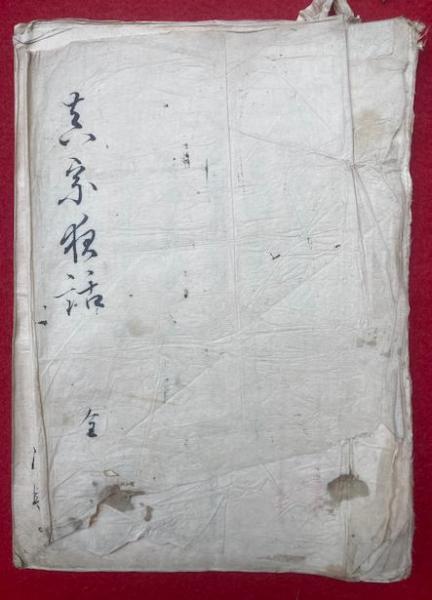 真宗夜話
全